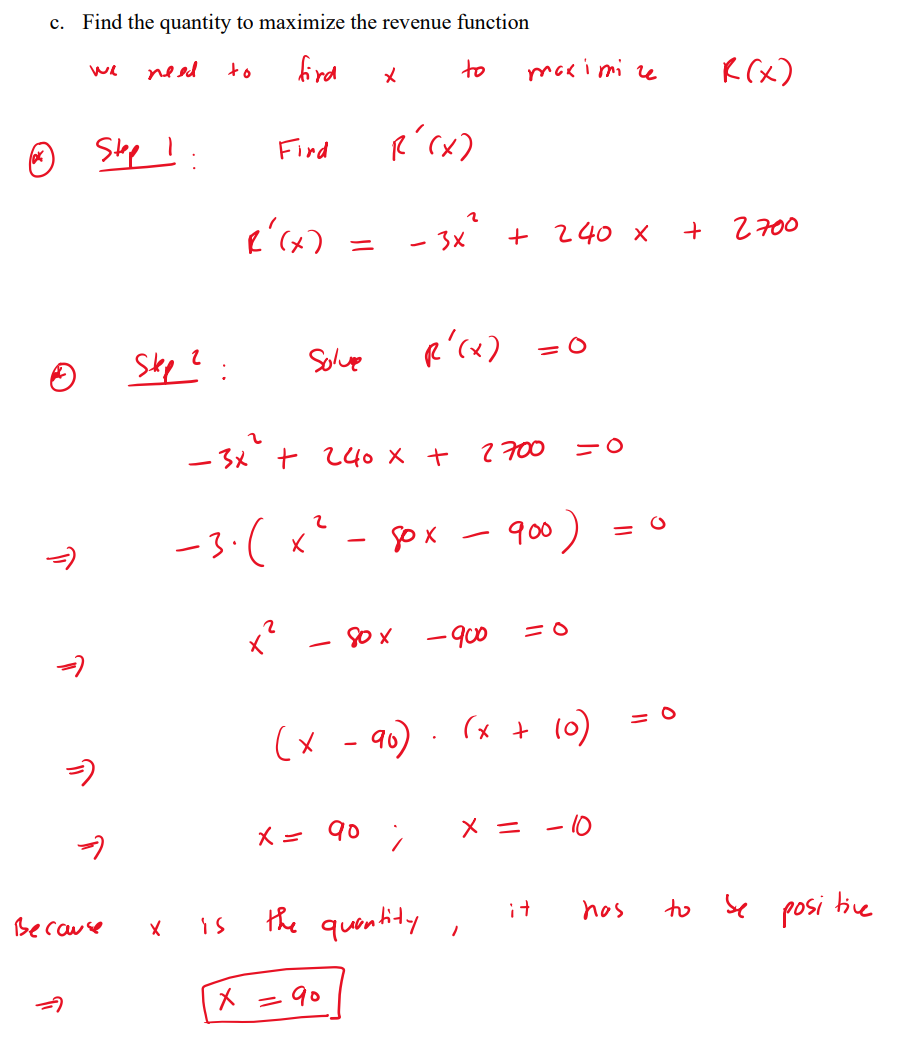 c. Find the quantity to maximize the revenue function
we need to find x to maximize R(x)
⊛ Step 1 : Find R'(x)
R'(x) = -3x² + 240 x + 2700
⊛ Step 2 : Solve R'(x) = 0
-3x² + 240 x + 2700 = 0
⇒ -3·( x² - 80x - 900 ) = 0
⇒ x² - 80x - 900 = 0
⇒ (x - 90) · (x + 10) = 0
⇒ x = 90 ; x = -10
Because x is the quantity, it has to be positive
⇒ x = 90